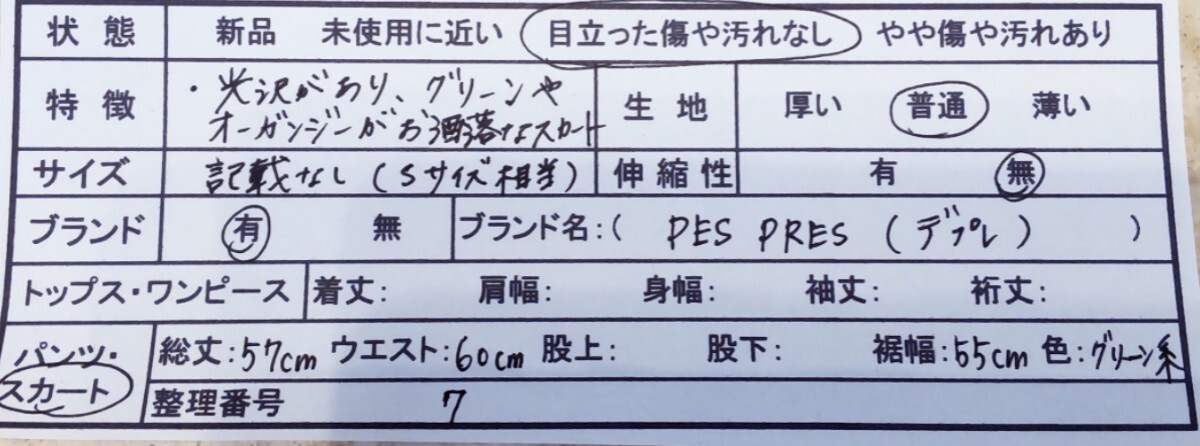 状態 新品 未使用に近い 目立った傷や汚れなし やや傷や汚れあり
特徴 ・光沢があり、グリーンや
オーガンジーがお洒落なスカート
生地 厚い 普通 薄い
サイズ 記載なし(Sサイズ相当) 伸縮性 有 無
ブランド 有 無 ブランド名:( DES PRES (デプレ) )
トップス・ワンピース 着丈: 肩幅: 身幅: 袖丈: 裄丈:
パンツ・
スカート
総丈:57cm ウエスト:60cm 股上: 股下: 裾幅:55cm 色:グリーン系
整理番号 7